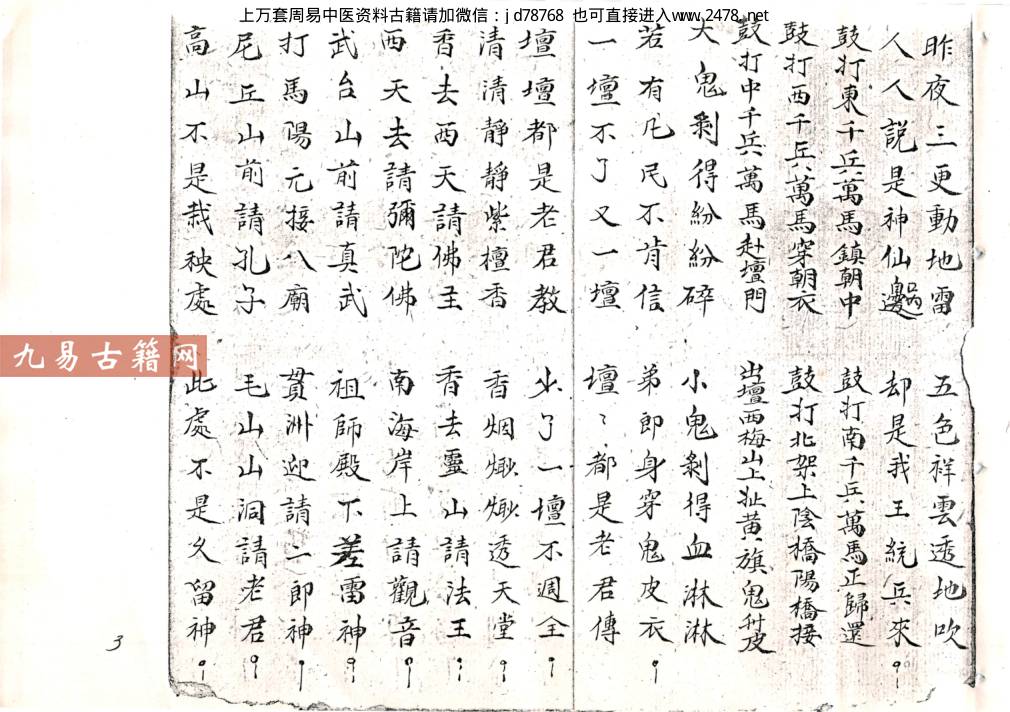 上万套周易中医资料古籍请加微信：jd78768 也可直接进入www.2478.net
昨夜三更動地雷 五色祥雲透地吹
人人説是神仙邊過 却是我王統兵來
鼓打東千兵萬馬鎮朝中 鼓打南千兵萬馬正歸還
鼓打西千兵萬馬穿朝衣 鼓打北架上陰橋陽橋接
鼓打中千兵萬馬赴壇門 出壇西梅山上扯黄旗鬼升皮
大鬼剥得紛紛碎 小鬼剥得血淋淋
若有凡民不肯信 弟郎身穿鬼皮衣
一壇不了又一壇 壇〻都是老君傳
壇壇都是老君教 少了一壇不週全
清清靜靜紫檀香 香烟燉燉透天堂
香去西天請佛主 香去靈山請法王
西天去請彌陀佛 南海岸上請觀音
武台山前請真武 祖師殿下差雷神
打馬陽元接八廟 貫洲迎請二郎神
尼丘山前請孔子 毛山山洞請老君
高山不是栽秧處 此處不是久留神
九易古籍网
3